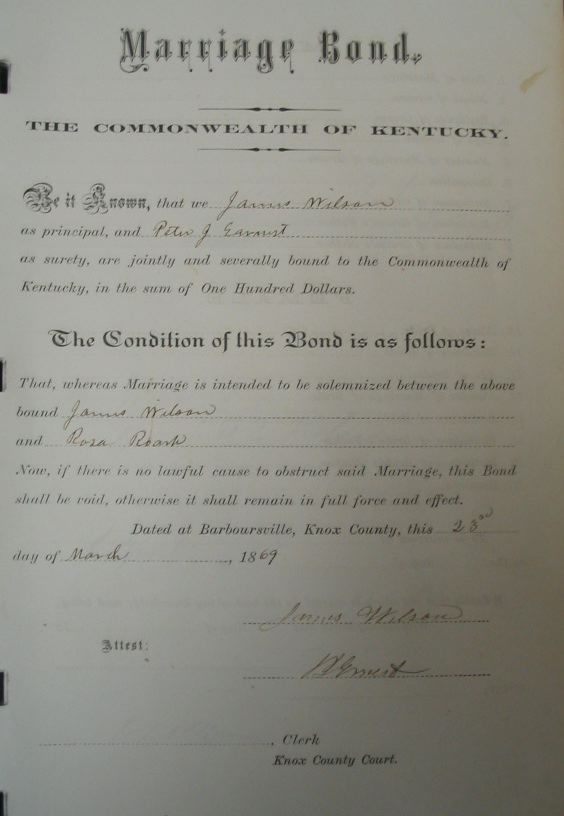 Marriage Bond.
THE COMMONWEALTH OF KENTUCKY.
Be it Known, that we James Wilson
as principal, and Peter J Earnest
as surety, are jointly and severally bound to the Commonwealth of
Kentucky, in the sum of One Hundred Dollars.
The Condition of this Bond is as follows:
That, whereas Marriage is intended to be solemnized between the above
bound James Wilson
and Rosa Roark
Now, if there is no lawful cause to obstruct said Marriage, this Bond
shall be void, otherwise it shall remain in full force and effect.
Dated at Barboursville, Knox County, this 23rd
day of March, 1869
James Wilson
Attest:
Ernest
, Clerk
Knox County Court.